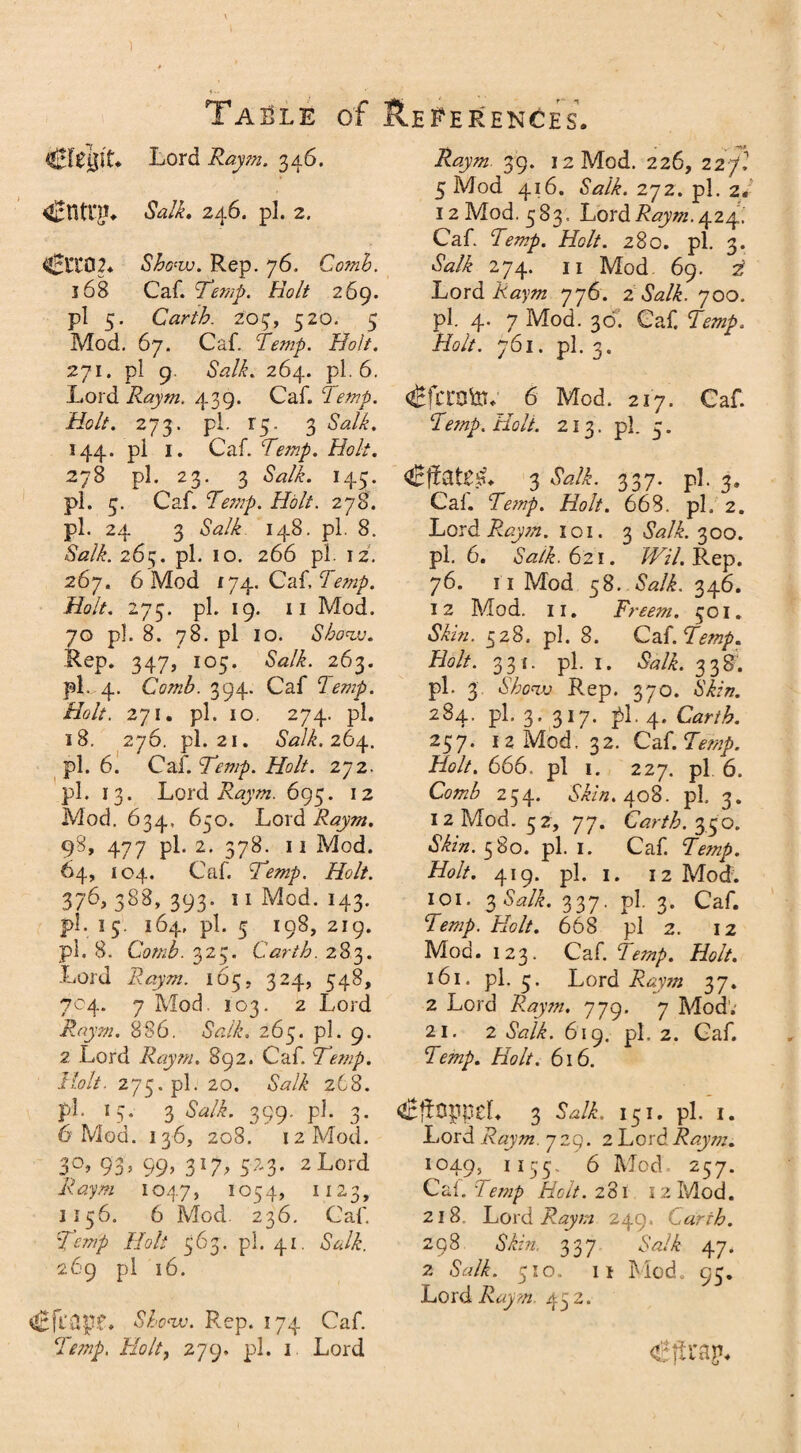 TABLE of REFERENCES.
Elegit. Lord Raym. 346.
Entry. Salk. 246. pl. 2.
Erroz. Show. Rep. 76. Comb.
168 Caſ. Temp. Holt 269.
pl 5. Carth. 205, 520. 5
Mod. 67. Caſ. Temp. Holt.
271. pl 9. Salk. 264. pl. 6.
Lord Raym. 439. Caſ. Temp.
Holt. 273. pl. 15. 3 Salk.
144. pl 1. Caſ. Temp. Holt.
278 pl. 23. 3 Salk. 145.
pl. 5. Caſ. Temp. Holt. 278.
pl. 24 3 Salk 148. pl. 8.
Salk. 265. pl. 10. 266 pl. 12.
267. 6 Mod 174. Caſ. Temp.
Holt. 275. pl. 19. 11 Mod.
70 pl. 8. 78. pl 10. Show.
Rep. 347, 105. Salk. 263.
pl. 4. Comb. 394. Caſ Temp.
Holt. 271. pl. 10. 274. pl.
18. 276. pl. 21. Salk. 264.
pl. 6. Caſ. Temp. Holt. 272.
pl. 13. Lord Raym. 695. 12
Mod. 634, 650. Lord Raym.
98, 477 pl. 2. 378. 11 Mod.
64, 104. Caſ. Temp. Holt.
376, 388, 393. 11 Mod. 143.
pl. 15. 164, pl. 5 198, 219.
pl. 8. Comb. 325. Carth. 283.
Lord Raym. 165, 324, 548,
704. 7 Mod. 103. 2 Lord
Raym. 886. Salk. 265. pl. 9.
2 Lord Raym. 892. Caſ. Temp.
Holt. 275. pl. 20. Salk 268.
pl. 15. 3 Salk. 399. pl. 3.
6 Mod. 136, 208. 12 Mod.
30, 93, 99, 317, 523. 2 Lord
Raym 1047, 1054, 1123,
1156. 6 Mod. 236. Caſ.
Temp Holt 563. pl. 41. Salk.
269 pl 16.
Eſcape. Show. Rep. 174 Caſ.
Temp. Holt, 279. pl. 1 Lord
Raym 39. 12 Mod. 226, 227.
5 Mod 416. Salk. 272. pl. 2.
12 Mod. 583. Lord Raym. 424.
Caſ. Temp. Holt. 280. pl. 3.
Salk 274. 11 Mod. 69. 2
Lord Raym 776. 2 Salk. 700.
pl. 4. 7 Mod. 30. Caſ. Temp.
Holt. 761. pl. 3.
Eſcrow. 6 Mod. 217. Caſ.
Temp. Holt. 213. pl. 5.
Eſtates. 3 Salk. 337. pl. 3.
Caſ. Temp. Holt. 668. pl. 2.
Lord Raym. 101. 3 Salk. 300.
pl. 6. Salk. 621. Wil. Rep.
76. 11 Mod 58. Salk. 346.
12 Mod. 11. Freem. 501.
Skin. 528. pl. 8. Caſ. Temp.
Holt. 331. pl. 1. Salk. 338.
pl. 3 Show Rep. 370. Skin.
284. pl. 3. 317. pl. 4. Carth.
257. 12 Mod. 32. Caſ. Temp.
Holt. 666. pl 1. 227. pl 6.
Comb 254. Skin. 408. pl. 3.
12 Mod. 52, 77. Carth. 350.
Skin. 580. pl. 1. Caſ. Temp.
Holt. 419. pl. 1. 12 Mod.
101. 3 Salk. 337. pl. 3. Caſ.
Temp. Holt. 668 pl 2. 12
Mod. 123. Caſ. Temp. Holt.
161. pl. 5. Lord Raym 37.
2 Lord Raym. 779. 7 Mod.
21. 2 Salk. 619. pl. 2. Caſ.
Temp. Holt. 616.
Eſtoppel. 3 Salk. 151. pl. 1.
Lord Raym. 729. 2 Lord Raym.
1049, 1155. 6 Mod. 257.
Caſ. Temp Holt. 281 12 Mod.
218. Lord Raym 249. Carth.
298 Skin. 337 Salk 47.
2 Salk. 510. 11 Mod. 95.
Lord Raym. 452.
Eſtray.